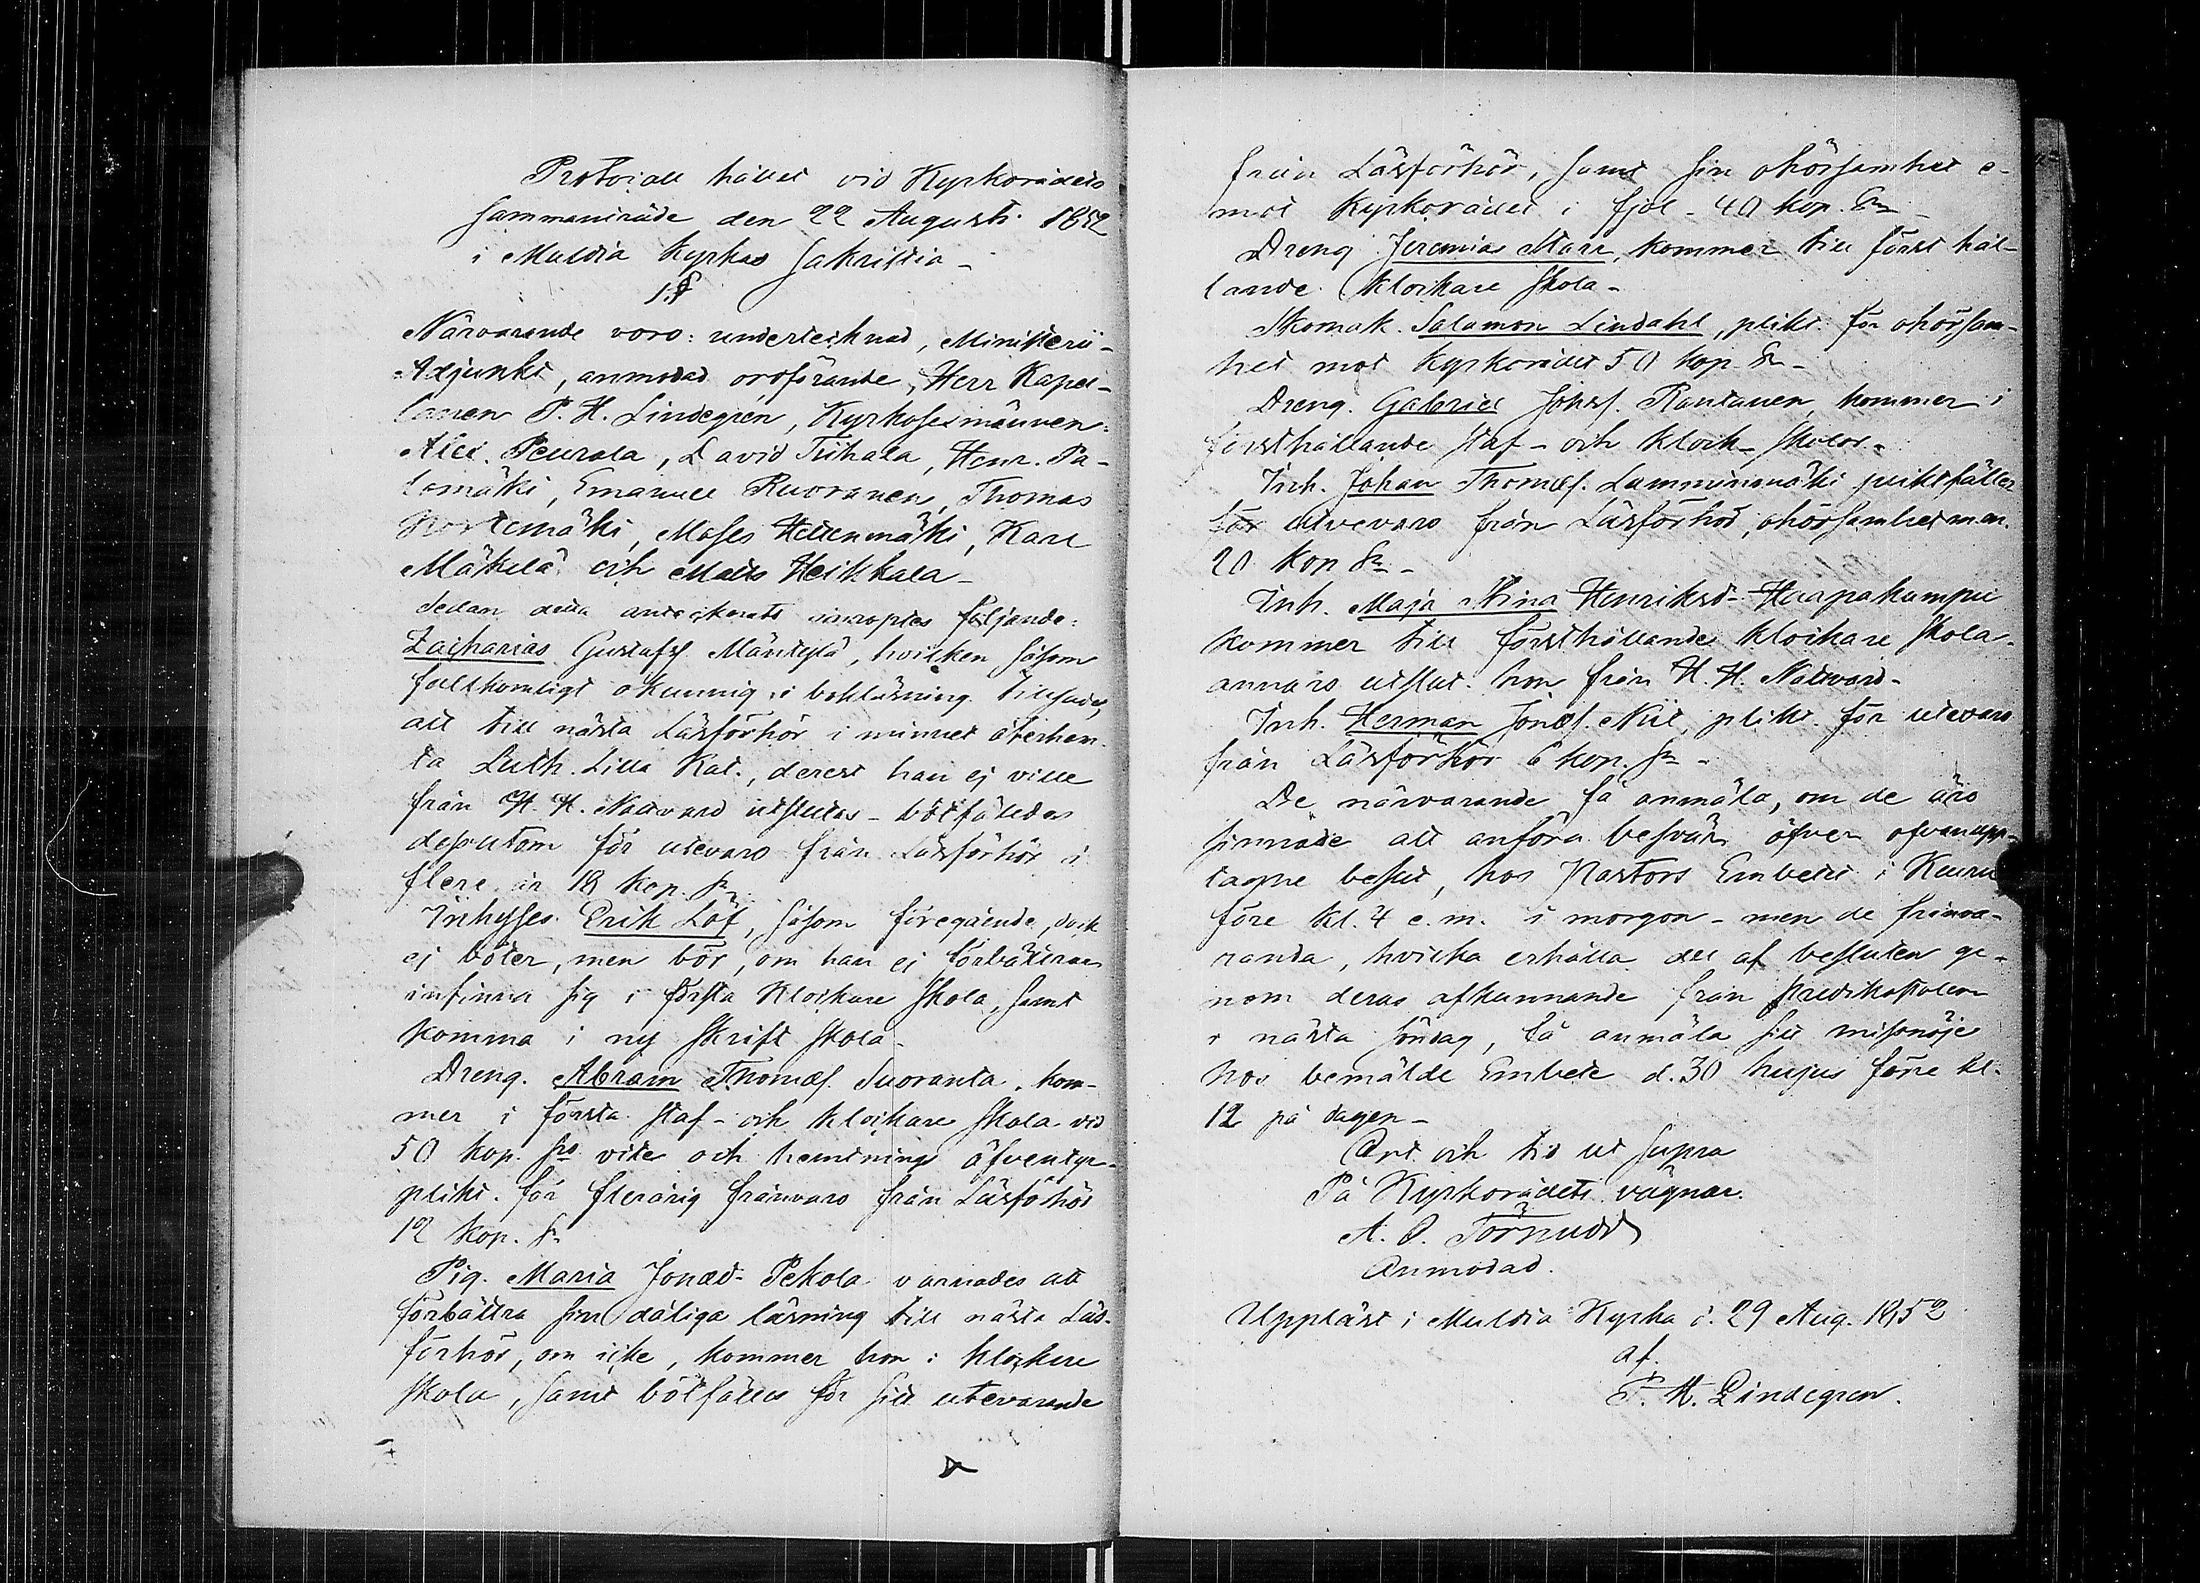 Protocoll hållet vid Kyrkorådets
sammanträde den 22 Augusti 1852
i Muldia Kyrkas Sakristia -
1.§
Närvarande voro: undertecknad, Ministerii-
Adjunkt, anmodad ordförande, Herr Kapel-
lanen P. H. Lindegrén, Kyrkosexmännen:
Alex. Peurala, David Tiihala, Henr. Pa-
lomäki, Emanuel Ruoranen, Thomas
Kortemäki, Moses Hettenmäki, Karl
Mäkelä och Matts Heikkala -
Sedan detta antecknats inroptes följande:
Zacharias Gustafss. Mäntylä, hvilken såsom
fullkomligt okunnig i bokläsning tillsades,
att till nästa Läsförhör i minnet återhem-
ta Luth. Lilla Kat., derest han ej ville
från H. H. Nattvard utslutas - bötfäldes
dessutom för utevaro från Läsförhör i
flere år 18 kop. Sr
Inhyses Erik Löf, såsom föregående, dock
ej böter, men bör, om han ej förbättras
infinna sig i första Klockare skola, samt
komma i ny skriftskola -
Dreng. Abram Thomæs. Suoranta, kom-
mer i första staf- och klockare skola vid
50 kop. Srs vite och hemtnings äfventyr -
plikt. för flerårig frånvaro från Läsförhör
12 kop. Sr
Pig. Maria Jonæd. Pekola varnades att
förbättra sin dåliga läsning till nästa Läs-
förhör, om icke, kommer hon i klockare
skola, samt bötfälles för sitt utevarande
från Läsförhör, samt sin ohörsamhet e-
mot Kyrkorådet i fjol - 40 kop. Sr -
Dreng Jeremias Starr, kommer till först hål-
lande Klockare skola -
Skomak. Salamon Lindahl, plikt. för ohörsam-
het mot Kyrkorådet 50 kop. Sr -
Dreng. Gabriel Johss. Rantanen kommer i
försthållande staf - och klock - skolor -
Inh. Johan Thomæs. Lamminmäki pliktfälles
för utevaro från Läsförhör, ohörsamhet m.m.
20 kop Sr -
Inh. Maja Stina Henriksd. Haapakumpu
kommer till försthållande klockare skola -
annars utslut. hon från H. H. Nattvard -
Inh. Herman Jonæs. Niit, plikt. för utevaro
från Läsförhör 6 kop. Sr -
De närvarande få anmäla, om de äro
sinnade att anföra besvär öfver ofvanupp-
tagne beslut, hos Pastors Embetet i Keuru
före kl. 4 e.m. i morgon - men de frånva-
randa, hvilka erhålla del af besluten ge-
nom deras afkunnande från predikstolen
i nästa söndag, få anmäla sitt missnöje
hos bemälde Embete d. 30 hujus före kl.
12 på dagen -
Ort och tid ut supra
På Kyrkorådets vägnar.
A. O. Törnudd
Anmodad.
Uppläst i Muldia Kyrka d. 29 Aug. 1852
af
P. H. Lindegren.